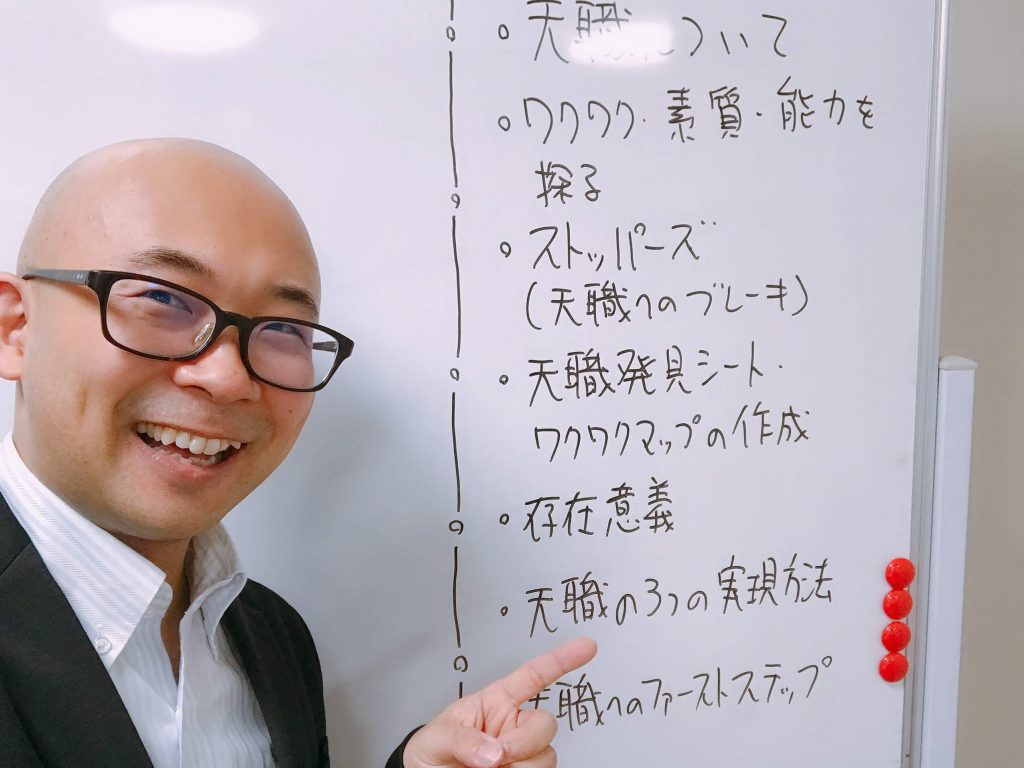 。天職について
。ワクワク・素質・能力を
探る
。ストッパーズ
(天職へのブレーキ)
。天職発見シート・
ワクワクマップの作成
。存在意義
。天職の3つの実現方法
天職へのファーストステップ